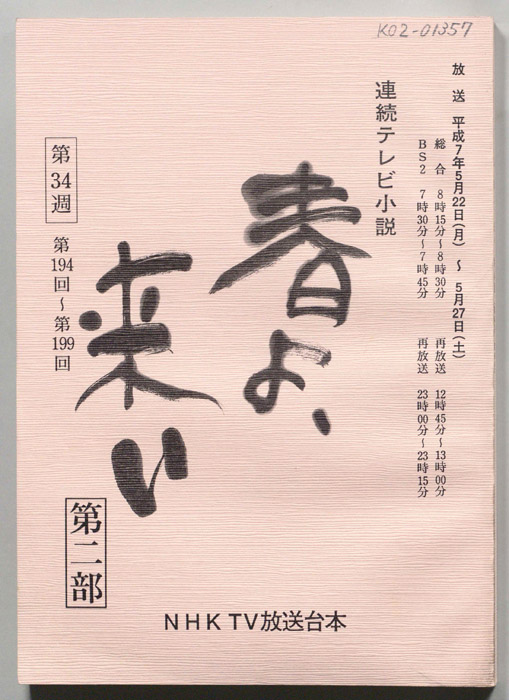 K02-01357
放送 平成7年5月22日(月) ~ 5月27日(土)
総合 8時15分~8時30分 再放送 12時45分~13時00分
BS2 7時30分~7時45分 再放送 23時00分~23時15分
連続テレビ小説
春よ、
来い
第34週
第194回~第199回
第二部
NHK TV放送台本